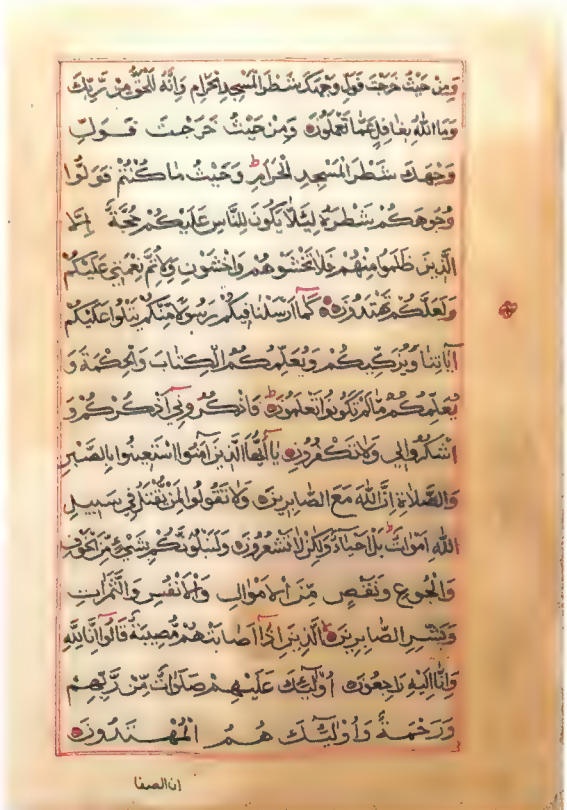 وَمِنْ حَيْثُ خَرَجْتَ فَوَلِّ وَجْهَكَ شَطْرَ الْمَسْجِدِ الْحَرَامِ وَإِنَّهُ لَلْحَقُّ مِنْ رَّبِّكَ
وَمَا اللّٰهُ بِغَافِلٍ عَمَّا تَعْمَلُونَ وَمِنْ حَيْثُ خَرَجْتَ فَوَلِّ
وَجْهَكَ شَطْرَ الْمَسْجِدِ الْحَرَامِ ط وَحَيْثُ مَا كُنْتُمْ فَوَلُّوا
وُجُوهَكُمْ شَطْرَهُ لِئَلَّا يَكُونَ لِلنَّاسِ عَلَيْكُمْ حُجَّةٌ إِلَّا
الَّذِينَ ظَلَمُوا مِنْهُمْ فَلَا تَخْشَوْهُمْ وَاخْشَوْنِي وَلِأُتِمَّ نِعْمَتِي عَلَيْكُمْ
وَلَعَلَّكُمْ تَهْتَدُونَ كَمَا أَرْسَلْنَا فِيكُمْ رَسُولًا مِنْكُمْ يَتْلُوا عَلَيْكُمْ
آيَاتِنَا وَيُزَكِّيكُمْ وَيُعَلِّمُكُمُ الْكِتَابَ وَالْحِكْمَةَ وَ
يُعَلِّمُكُمْ مَا لَمْ تَكُونُوا تَعْلَمُونَ فَاذْكُرُونِي أَذْكُرْكُمْ وَ
اشْكُرُوا لِي وَلَا تَكْفُرُونِ يَا أَيُّهَا الَّذِينَ آمَنُوا اسْتَعِينُوا بِالصَّبْرِ
وَالصَّلَاةِ إِنَّ اللّٰهَ مَعَ الصَّابِرِينَ وَلَا تَقُولُوا لِمَنْ يُقْتَلُ فِي سَبِيلِ
اللّٰهِ أَمْوَاتٌ ط بَلْ أَحْيَاءٌ وَلٰكِنْ لَا تَشْعُرُونَ وَلَنَبْلُوَنَّكُمْ بِشَيْءٍ مِّنَ الْخَوْفِ
وَالْجُوعِ وَنَقْصٍ مِّنَ الْأَمْوَالِ وَالْأَنْفُسِ وَالثَّمَرَاتِ
وَبَشِّرِ الصَّابِرِينَ الَّذِينَ إِذَا أَصَابَتْهُمْ مُّصِيبَةٌ قَالُوا إِنَّا لِلّٰهِ
وَإِنَّا إِلَيْهِ رَاجِعُونَ أُولٰئِكَ عَلَيْهِمْ صَلَوَاتٌ مِّنْ رَّبِّهِمْ
وَرَحْمَةٌ وَأُولٰئِكَ هُمُ الْمُهْتَدُونَ
ان الصفا